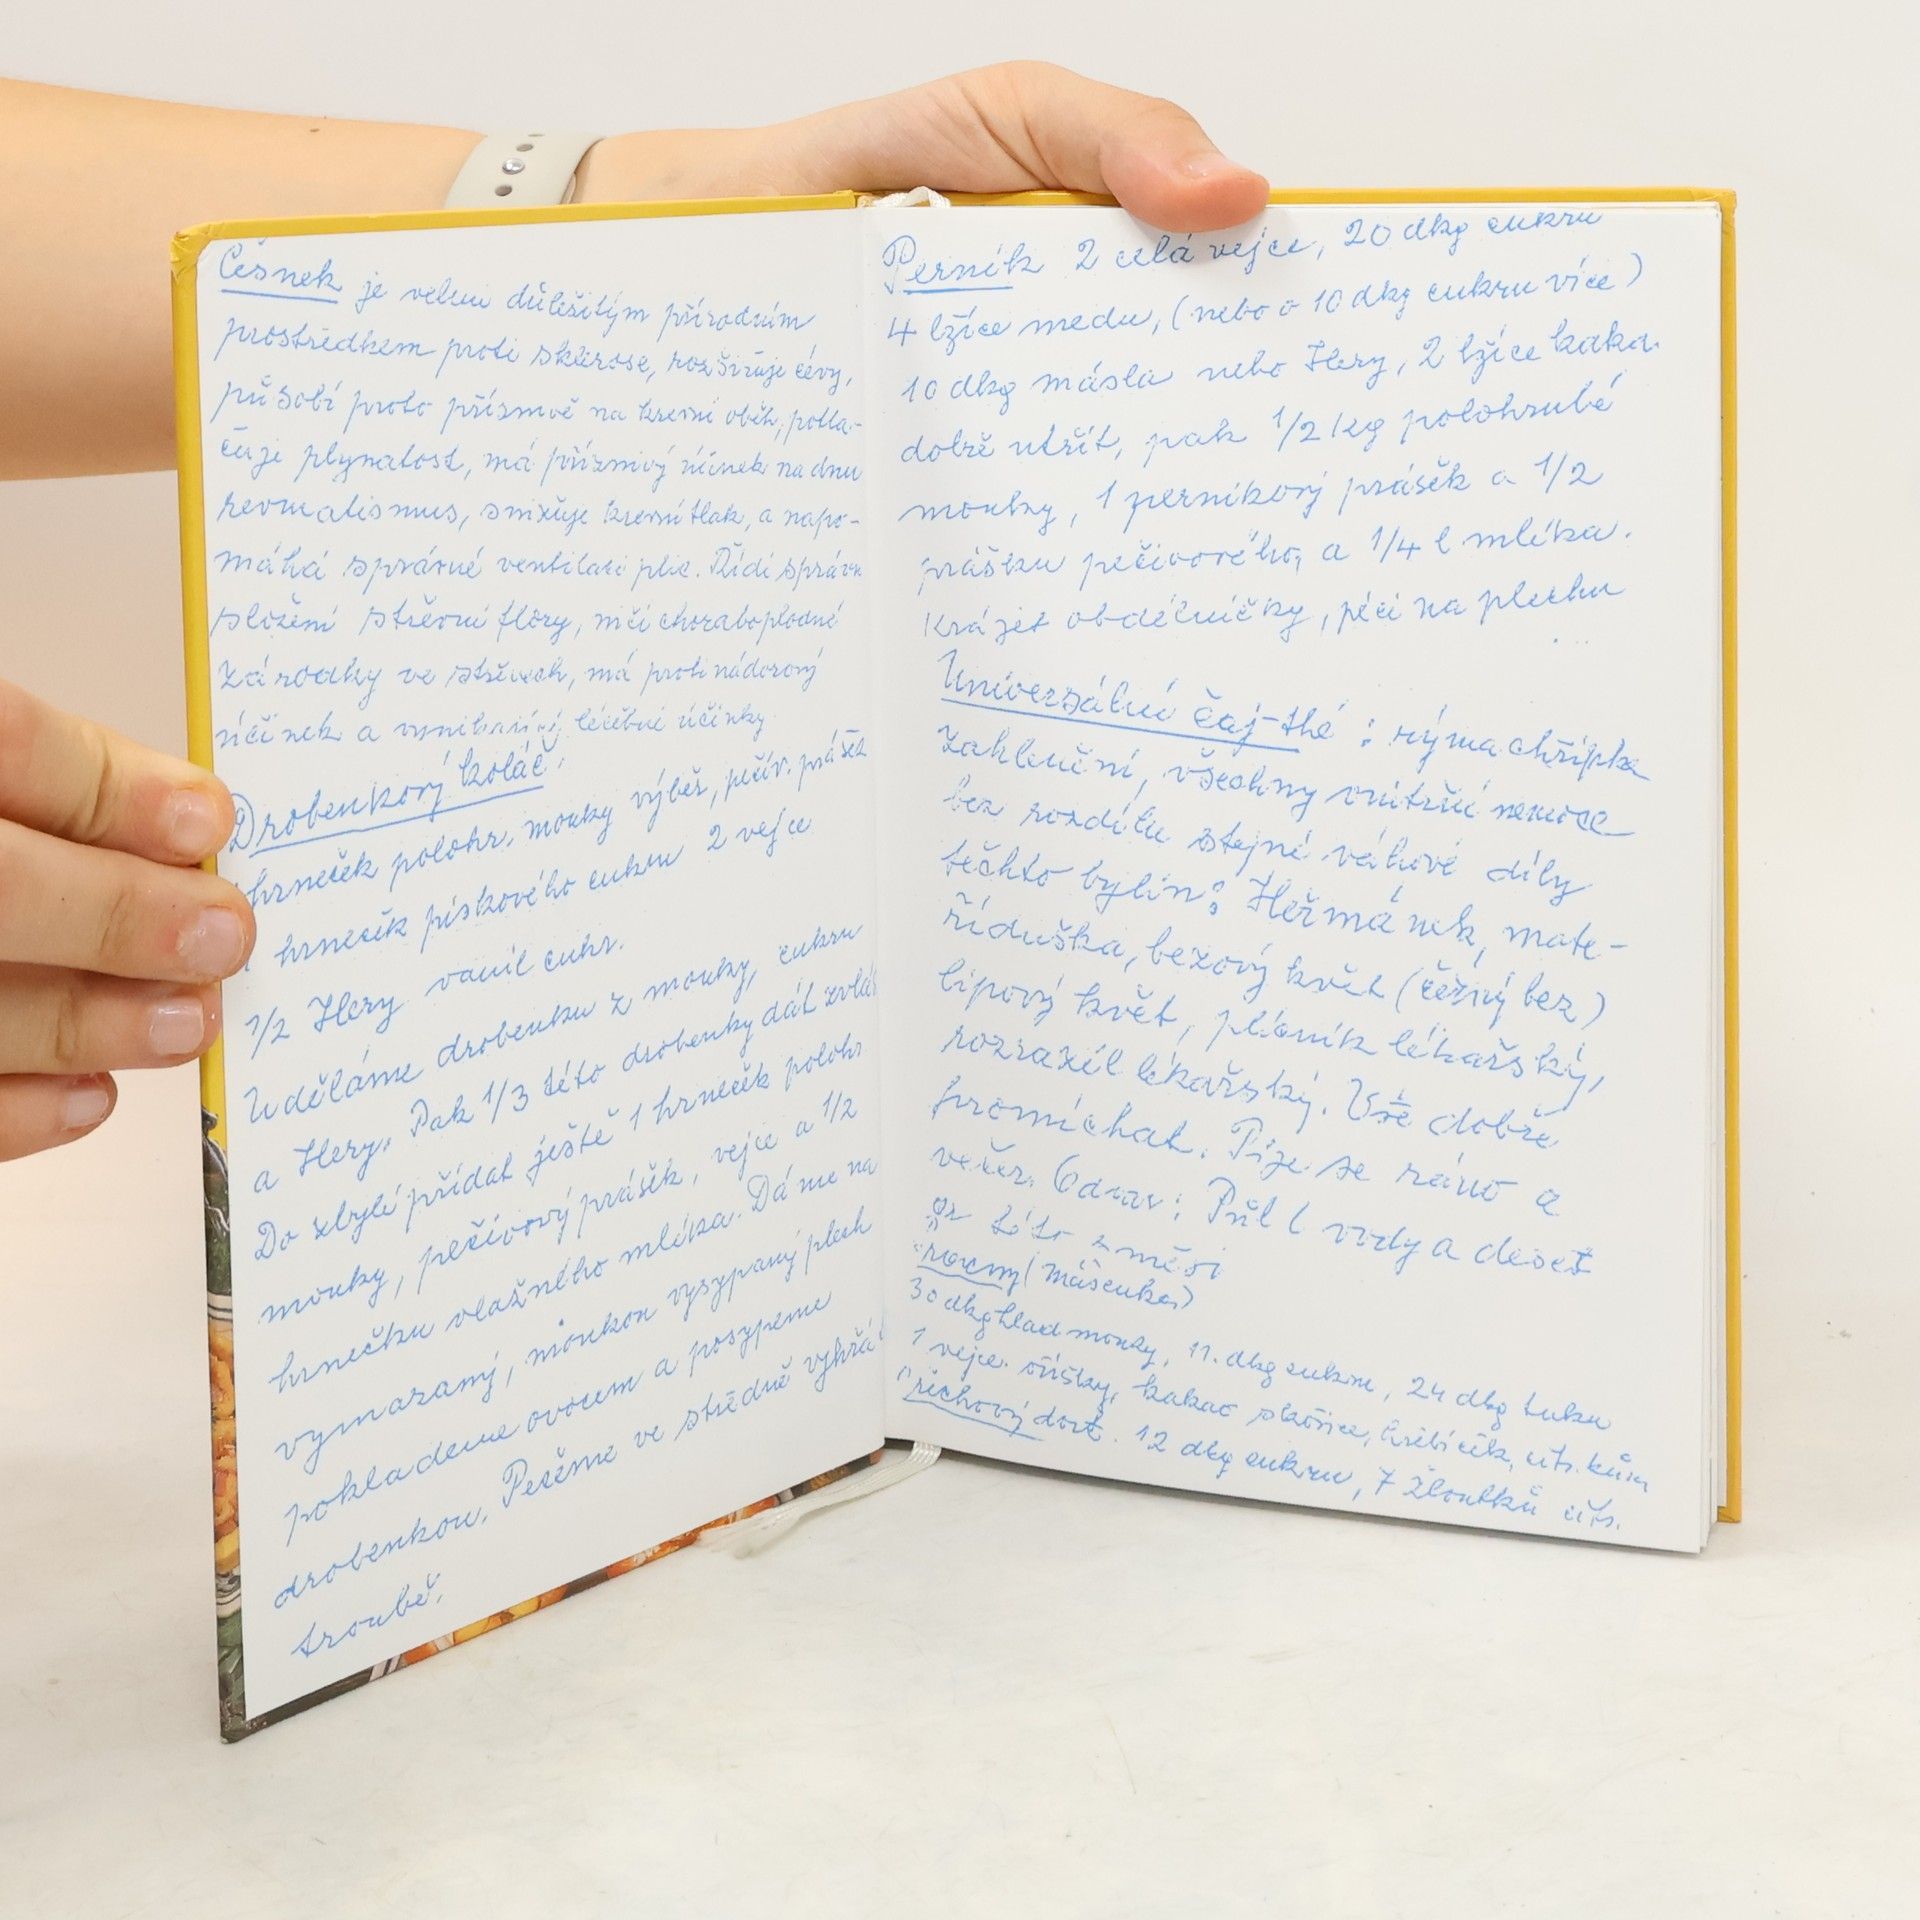 Česnek je velmi důležitým přírodním
prostředkem proti sklerose, rozšiřuje cévy,
působí proto příznivě na krevní oběh, potla-
čuje plynatost, má příznivý účinek na dnu
revmatismus, snižuje krevní tlak, a napo-
máhá správné ventilaci plic. Řídí správn
složení střevní flory, ničí choroboplodné
zárodky ve střevech, má protinádorový
účinek a vynikající léčebné účinky
Drobenkový koláč.
hrneček polohr. mouky výběr, pečiv. prášek
1 hrneček pískového cukru 2 vejce
1/2 Hery vanil cukr.
Uděláme drobenku z mouky, cukru
a Hery. Pak 1/3 této drobenky dát zvlá
Do zbylé přidat ještě 1 hrneček polohr
mouky, pečivový prášek, vejce a 1/2
hrnečku vlažného mléka. Dáme na
vymazaný, moukou vysypaný plech
poklademe ovocem a posypeme
drobenkou. Pečeme ve středně vyhřá
troubě.
Perník 2 celá vejce, 20 dkg cukru
4 lžíce medu, (nebo o 10 dkg cukru více)
10 dkg másla nebo Hery, 2 lžíce kaka.
dobře utřít, pak 1/2 kg polohrubé
mouky, 1 perníkový prášek a 1/2
prášku pečivového, a 1/4 l mléka.
Krájet obdélníčky, péci na plechu
Universální čaj-thé: rýma chřipka
zahlenění, všechny vnitřní nemoce
bez rozdílu stejné váhové díly
těchto bylin: Heřmánek, mate-
řídouška, bezový květ (černý bez)
lipový květ, plicník lékařský,
rozrazil lékařský. Vše dobře
promíchat. Pije se ráno a
večer. Odvar: Půl l vody a deset
gr této směsi
(Mášenka)
30 dkg hlad mouky, 11. dkg cukru, 24 dkg tuku
1 vejce. oříšky, kakao skořice, hřebíček, citr. kůra
řechový dort. 12 dkg cukru, 7 žloutků citr.